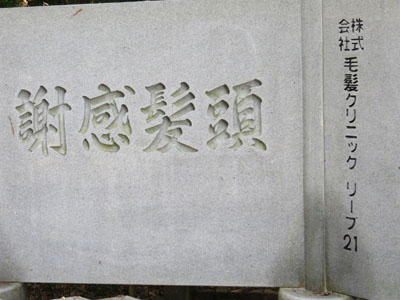 頭髪感謝
株式会社 毛髪クリニック リーブ21